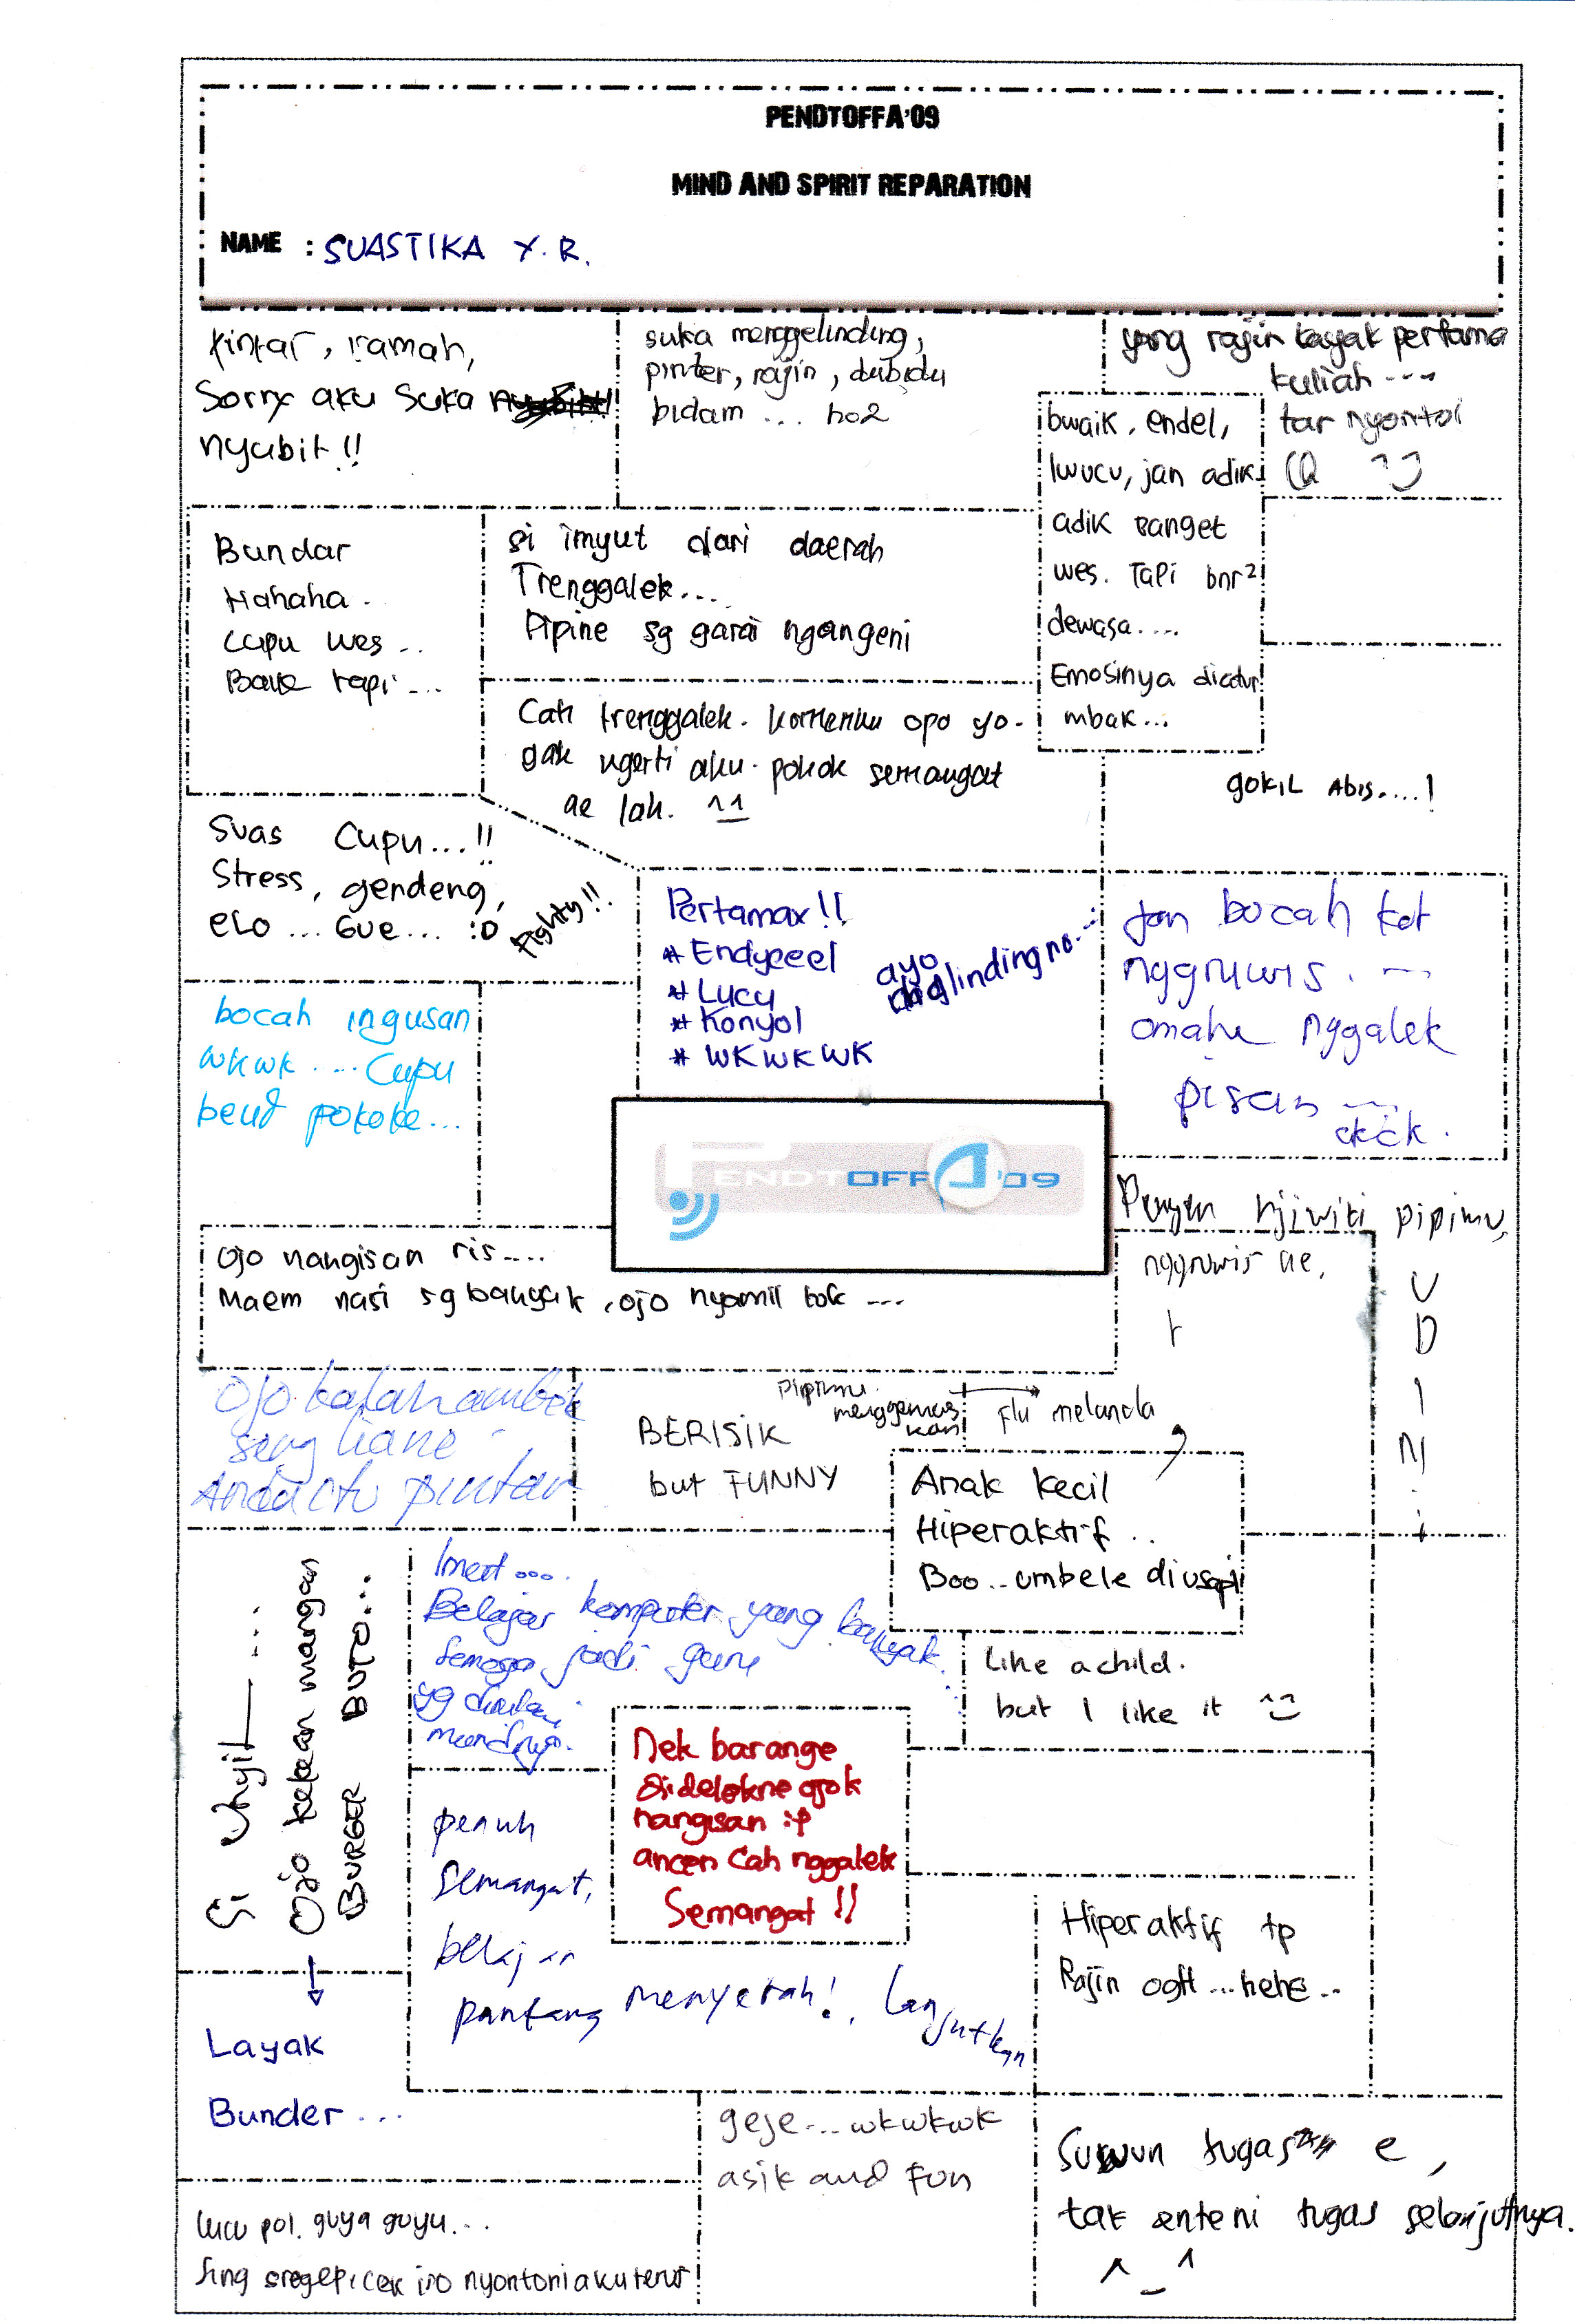 PENDTOFFA'09
MIND AND SPIRIT REPARATION
NAME : SUASTIKA Y. R.
pintar, ramah,
Sorry aku suka
nyubit !!
suka menggelinding,
pinter, rajin, dubidu
bidam ... ho2
yang rajin kayak pertama
kuliah ---
tar nyontoi
bwaik, endel,
lwucu, jan adik
adik banget
wes. Tapi bnr²
dewasa....
Emosinya diatur
mbak...
Bundar
Hahaha.
Cupu wes ..
Baik tapi ...
si imyut dari daerah
Trenggalek...
Pipine sg garai ngangeni
Cah trenggalek. komenku opo yo.
gak ngerti aku. pokok semangat
ae lah. ^_^
gokil Abis....!
Suas Cupu...!!
Stress, gendeng,
eLo ... Gue... :D
Fighty!!
Pertamax!!
# Endyeeel
# Lucu
# Konyol
# WKWKWK
ayo
nglindingno...
jan bocah kot
nggruwis. ...
omahe nggalek
pisan ...
ckck.
bocah ingusan
wkwk .... Cupu
beud pokoke...
PENDTOFFA'09
Pengen njiwiti pipimu,
nggruwis ae,
U
D
I
N
!
Ojo nangisan ris....
Maem nasi sg banyak, ojo nyamil tok ...
Ojo kalah ambek
seng liane
Anda itu pintar
BERISIK
but FUNNY
pipimu
menggemas
kan
Flu melanda
Anak kecil
Hiperaktif ..
Boo.. umbele diusapi
Si Unyil ....
Ojo kekean mangan
BURGER BUTO...
Layak
Bunder ...
Imert ....
Belajar komputer yang banyak
Semoga jadi guru
yg
muridnya.
Like a child.
but I like it ^_^
Nek barange
didelokne ojok
nangisan :p
ancen Cah nggalek
Semangat !!
penuh
semangat,
belajar
pantang menyerah!, Lanjutkan
Hiperaktif tp
Rajin ogh ...hehe..
geje...wkwkwk
asik and Fun
Suwun tugas e,
tak enteni tugas selanjutnya.
^_^
lucu pol. guya guyu...
Sing sregep, cek iso nyontoni aku terus